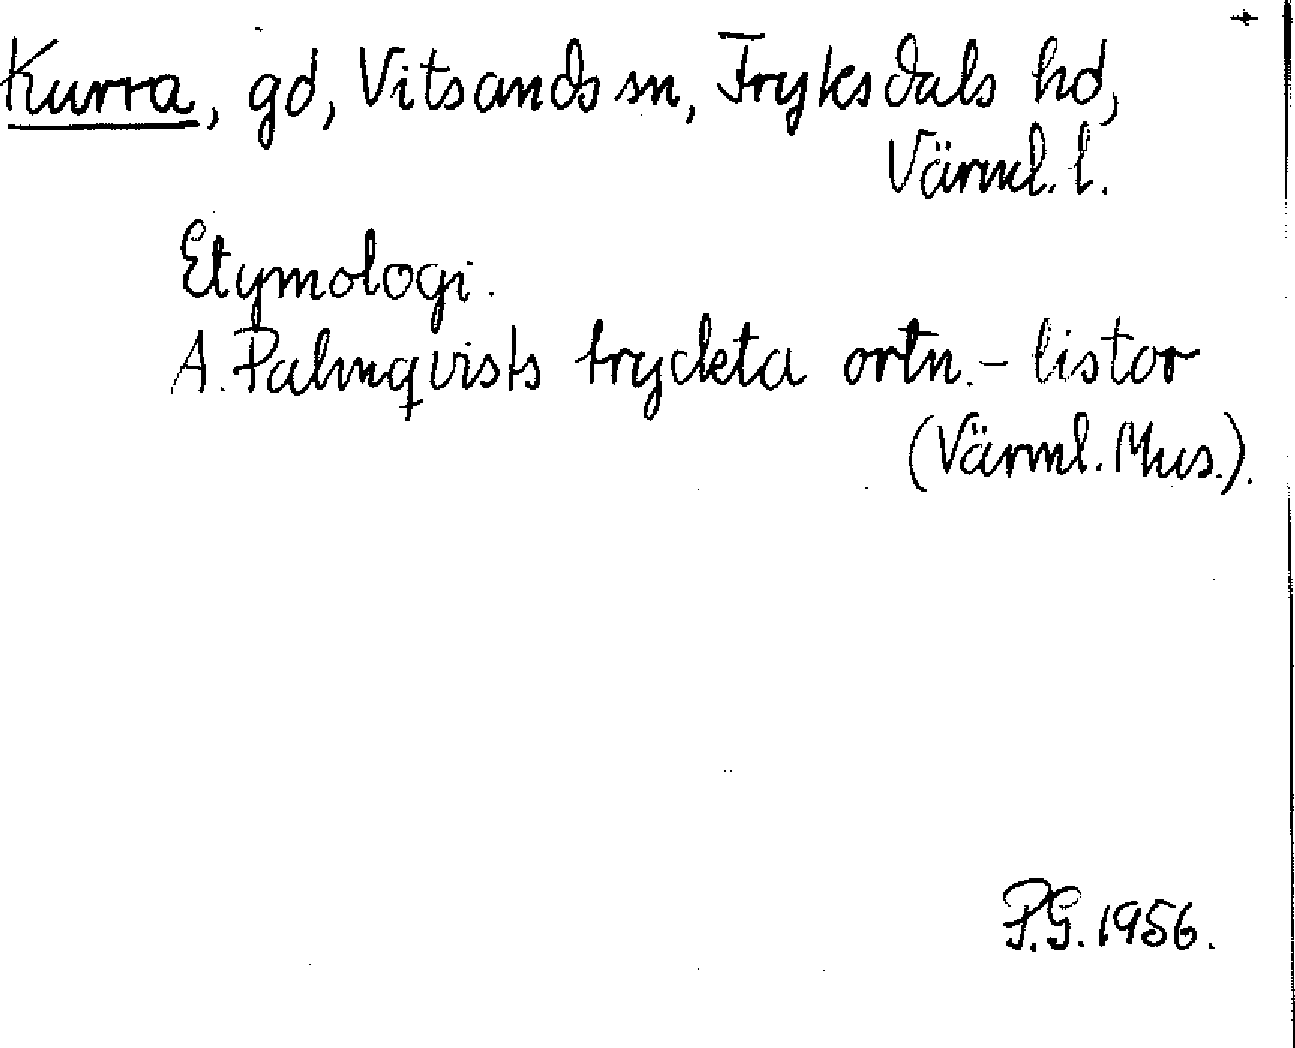 Kurra, gd, Vitsands sn, Fryksdals hd,
Värml. l.
Etymologi.
A. Palmqvists tryckta ortn.-listor
(Värml. Mus.).
P.G. 1956.